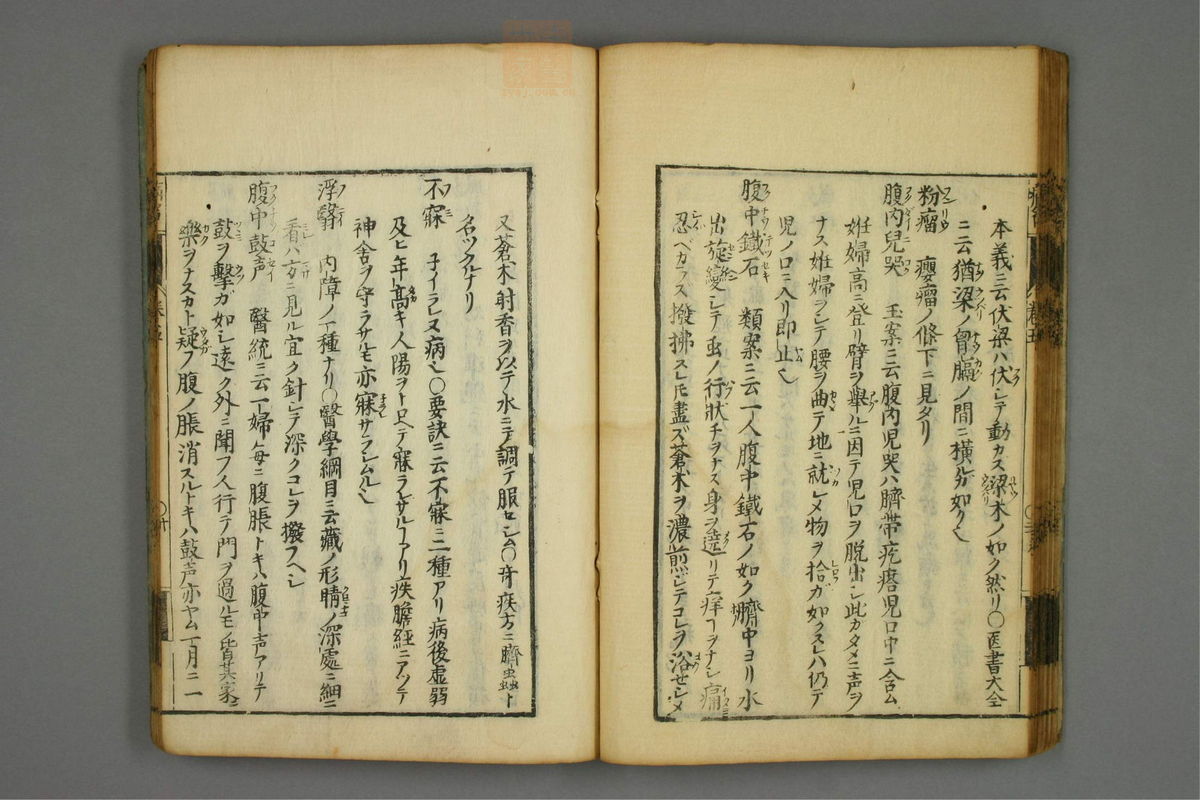 本義ニ云伏梁ハ伏シテ動カス梁木ノ如ク然リ〇医書大全
ニ云猶梁ノ胷膈ノ間ニ横ルガ如ク也
粉瘤 癭瘤ノ條下ニ見タリ
腹内兒哭 玉案ニ云腹内児哭ハ臍帯疙瘩児口中ニ含ム
妊婦高ニ登リ臂ヲ舉ルニ因テ児口ヲ脱出シ此カタメニ声ヲ
ナス妊婦ヲシテ腰ヲ曲テ地ニ就シメ物ヲ拾ガ如クスレハ仍テ
児ノ口ニ入リ即止也
腹中鐵石 類案ニ云一人腹中鐵石ノ如ク臍中ヨリ水
出旋纏シテ虫ノ行状チヲナス身ヲ遶リテ痒コヲナシ痛
忍ベカラズ撥拂スレ𪜈盡ズ蒼术ヲ濃煎シテコレヲ浴セシメ
又蒼木射香ヲ以テ水ニテ調テ服セシム〇奇疾方ニ臍虫蟲ト
名ツクルナリ
不寐 子イラレヌ病也〇要訣ニ云不寐ニ二種アリ病後虚弱
及ヒ年高キ人陽ヲトロヘテ寐ラレザルコアリ痰膽経ニアツテ
神舎ヲ守ラサルモ亦寐サラシムル也
浮翳 内障ノ一種ナリ〇醫學綱目ニ云藏ノ形睛ノ深處ニ細ニ
看ハ方ニ見ル宜ク針シテ深クコレヲ撥フヘシ
腹中鼓声 醫統ニ云一婦毎ニ腹脹トキハ腹中声アリテ
鼓ヲ擊ガ如シ遠ク外ニ聞フ人行テ門ヲ過ルモノ皆其家ニ
樂ヲナスカト疑フ腹ノ脹消スルトキハ鼓声亦ヤム一月ニ一